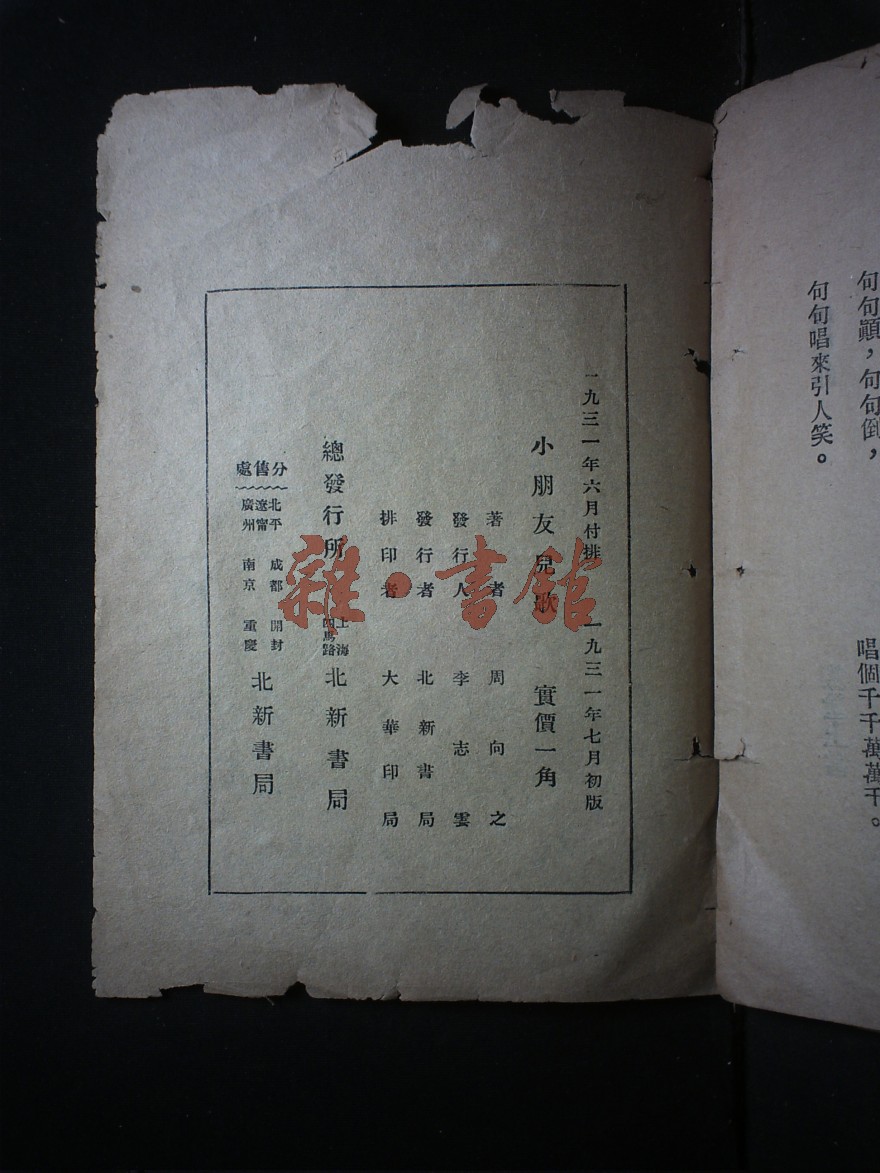 句句顛，句句倒，
唱個千千萬萬千。
句句唱來引人笑。
一九三一年六月付排 一九三一年七月初版
小朋友兒歌 實價一角
著者 周向之
發行人 李志雲
發行者 北新書局
排印者 大華印局
總發行所 上海四馬路 北新書局
分售處
北平 成都 開封
遼寧
廣州 南京 重慶
北新書局
雜·書館